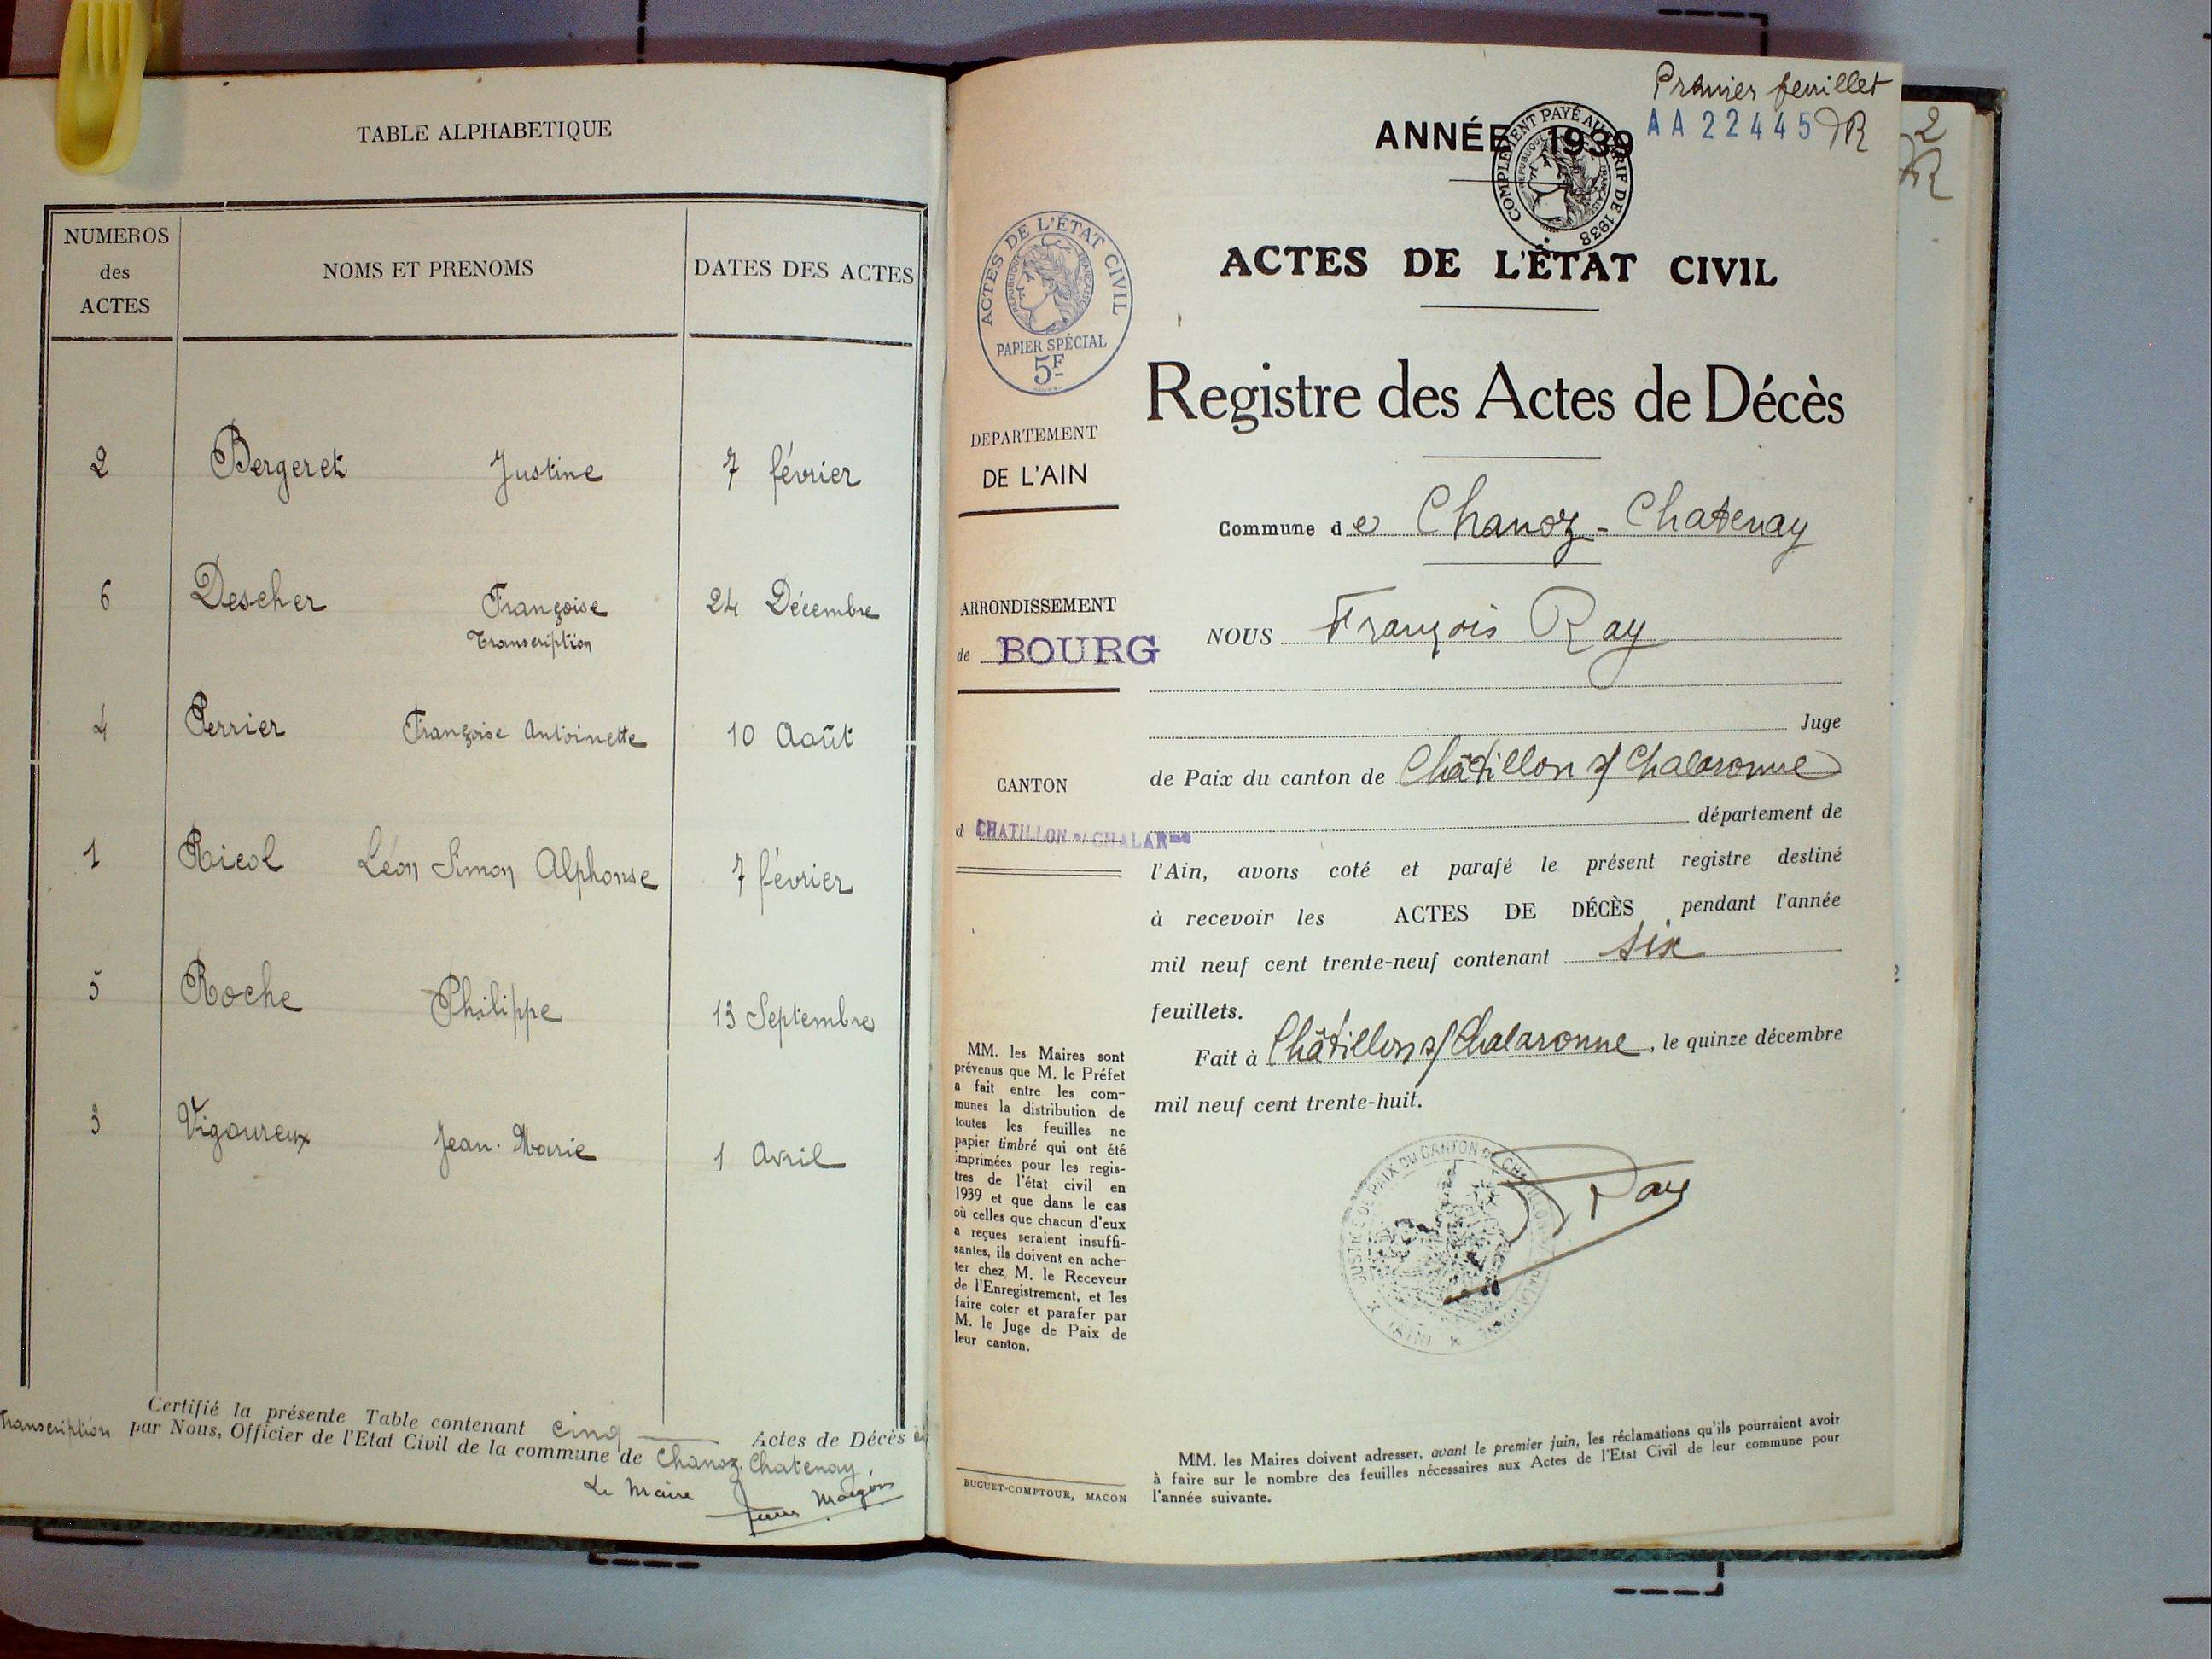 TABLE ALPHABETIQUE
NUMEROS
des
ACTES
NOMS ET PRENOMS
DATES DES ACTES
2 Bergeret Justine 7 février
6 Descher Françoise 24 Décembre
Transcription
4 Perrier Françoise Antoinette 10 Août
1 Ricol Léon Simon Alphonse 7 février
5 Roche Philippe 13 Septembre
3 Vigoureux Jean-Marie 1 Avril
Certifié la présente Table contenant cinq Actes de Décès et
transcription par Nous, Officier de l'Etat Civil de la commune de Chanoz-Chatenay.
Le Maire
Premier feuillet
ANNÉE 1939
AA22445 R
2
R
COMPLÉMENT PAYÉ AU TARIF DE 1938
RÉPUBLIQUE FRANÇAISE
ACTES DE L'ÉTAT CIVIL
ACTES DE L'ÉTAT CIVIL
RÉPUBLIQUE FRANÇAISE
PAPIER SPÉCIAL
5F
Registre des Actes de Décès
DEPARTEMENT
DE L'AIN
Commune de Chanoz-Chatenay
ARRONDISSEMENT
de BOURG
NOUS François Ray
Juge
CANTON
d CHATILLON s/ CHALARNE
de Paix du canton de Châtillon s/ Chalaronne
département de
l'Ain, avons coté et parafé le présent registre destiné
à recevoir les ACTES DE DÉCÈS pendant l'année
mil neuf cent trente-neuf contenant six
feuillets.
Fait à Châtillon s/ Chalaronne, le quinze décembre
mil neuf cent trente-huit.
JUSTICE DE PAIX DU CANTON DE CHATILLON
(AIN)
Ray
MM. les Maires sont
prévenus que M. le Préfet
a fait entre les com-
munes la distribution de
toutes les feuilles ne
papier timbré qui ont été
imprimées pour les regis-
tres de l'état civil en
1939 et que dans le cas
où celles que chacun d'eux
a reçues seraient insuffi-
santes, ils doivent en ache-
ter chez M. le Receveur
de l'Enregistrement, et les
faire coter et parafer par
M. le Juge de Paix de
leur canton.
BUGUET-COMPTOUR, MACON
MM. les Maires doivent adresser, avant le premier juin, les réclamations qu'ils pourraient avoir
à faire sur le nombre des feuilles nécessaires aux Actes de l'Etat Civil de leur commune pour
l'année suivante.